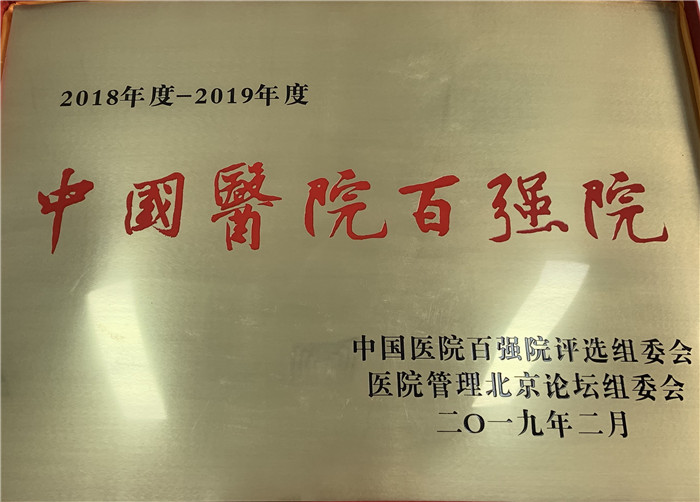 2018年度-2019年度
中國醫院百强院
中国医院百强院评选组委会
医院管理北京论坛组委会
二〇一九年二月